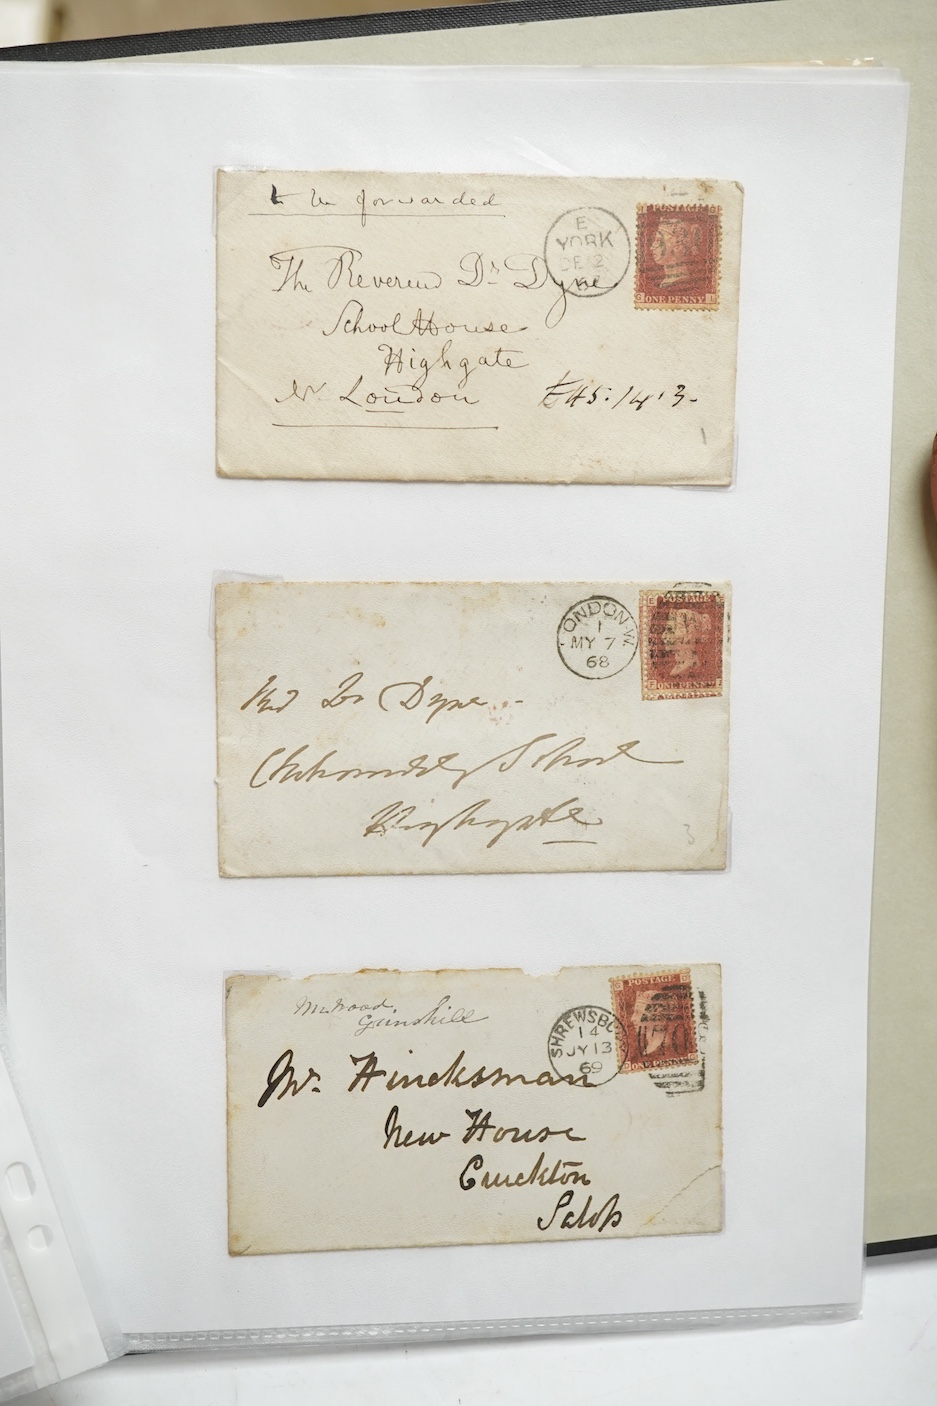 to be forwarded
E
YORK
DE 12
The Reverend Dr Dyne
School House
Highgate
Nr London
£45:14.3-
POSTAGE
ONE PENNY
1
LONDON-W.
1
MY 7
68
Revd Dr Dyne
Cholmondeley School
Highgate
POSTAGE
ONE PENNY
3
Grinshill
SHREWSBU
14
JY 13
69
Mr. Hincksman
New House
Cruckton
Salop
POSTAGE
ONE PENNY